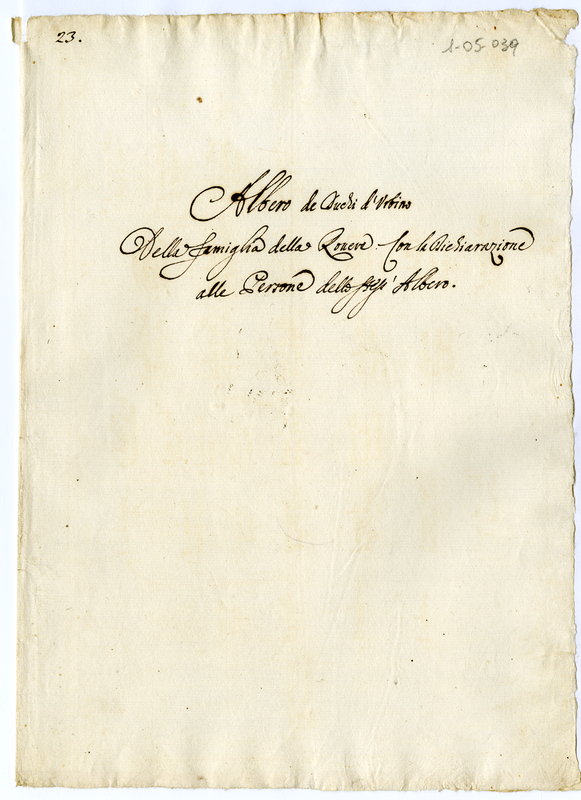 23.
1-05-039
Albero de Duchi d'Urbino
Della famiglia della Rouere. Con la Dichiarazione
alle Persone dello stess' Albero.